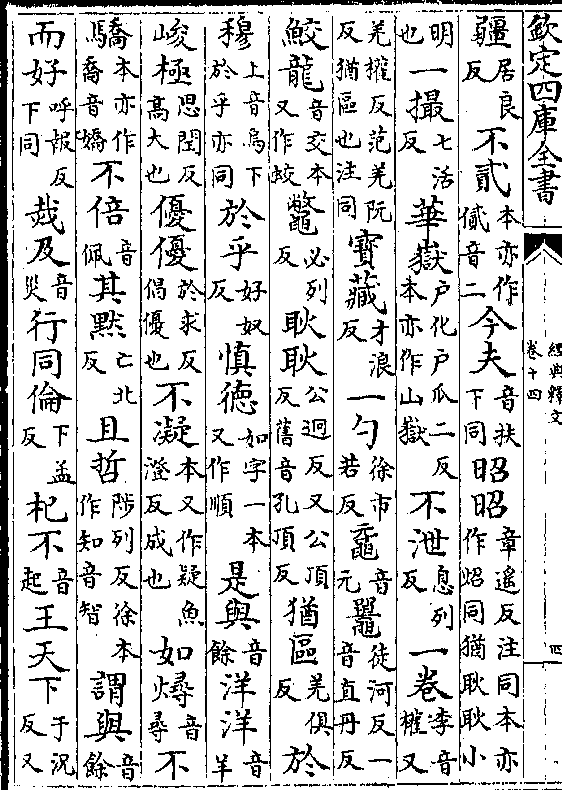 欽定四庫全書
經典釋文
卷十四
四
疆居良反不貳本亦作㒃音二今夫音扶下同昭昭章遙反注同本亦作炤同猶耿耿小
明也一撮七活反華嶽戶化戶瓜二反本亦作山嶽不泄息列反一卷李音權又
羌權反范羌阮反猶區也注同寶藏才浪反一勺徐市若反黿音元鼉徒河反一音直丹反
鮫龍音交本又作蛟鼈必列反耿耿公迥反又公頂反舊音孔頂反猶區羌俱反於
穆上音烏下於乎亦同於乎好奴反慎德如字一本又作順是與音餘洋洋音羊
峻極思閏反高大也優優於求反倡優也不凝本又作疑魚澄反成也如燖音尋不
驕本亦作喬音嬌不倍音佩其默亡北反且哲陟列反徐本作知音智謂與音餘
而好呼報反下同烖及音災行同倫下孟反杞不音起王天下于況反又